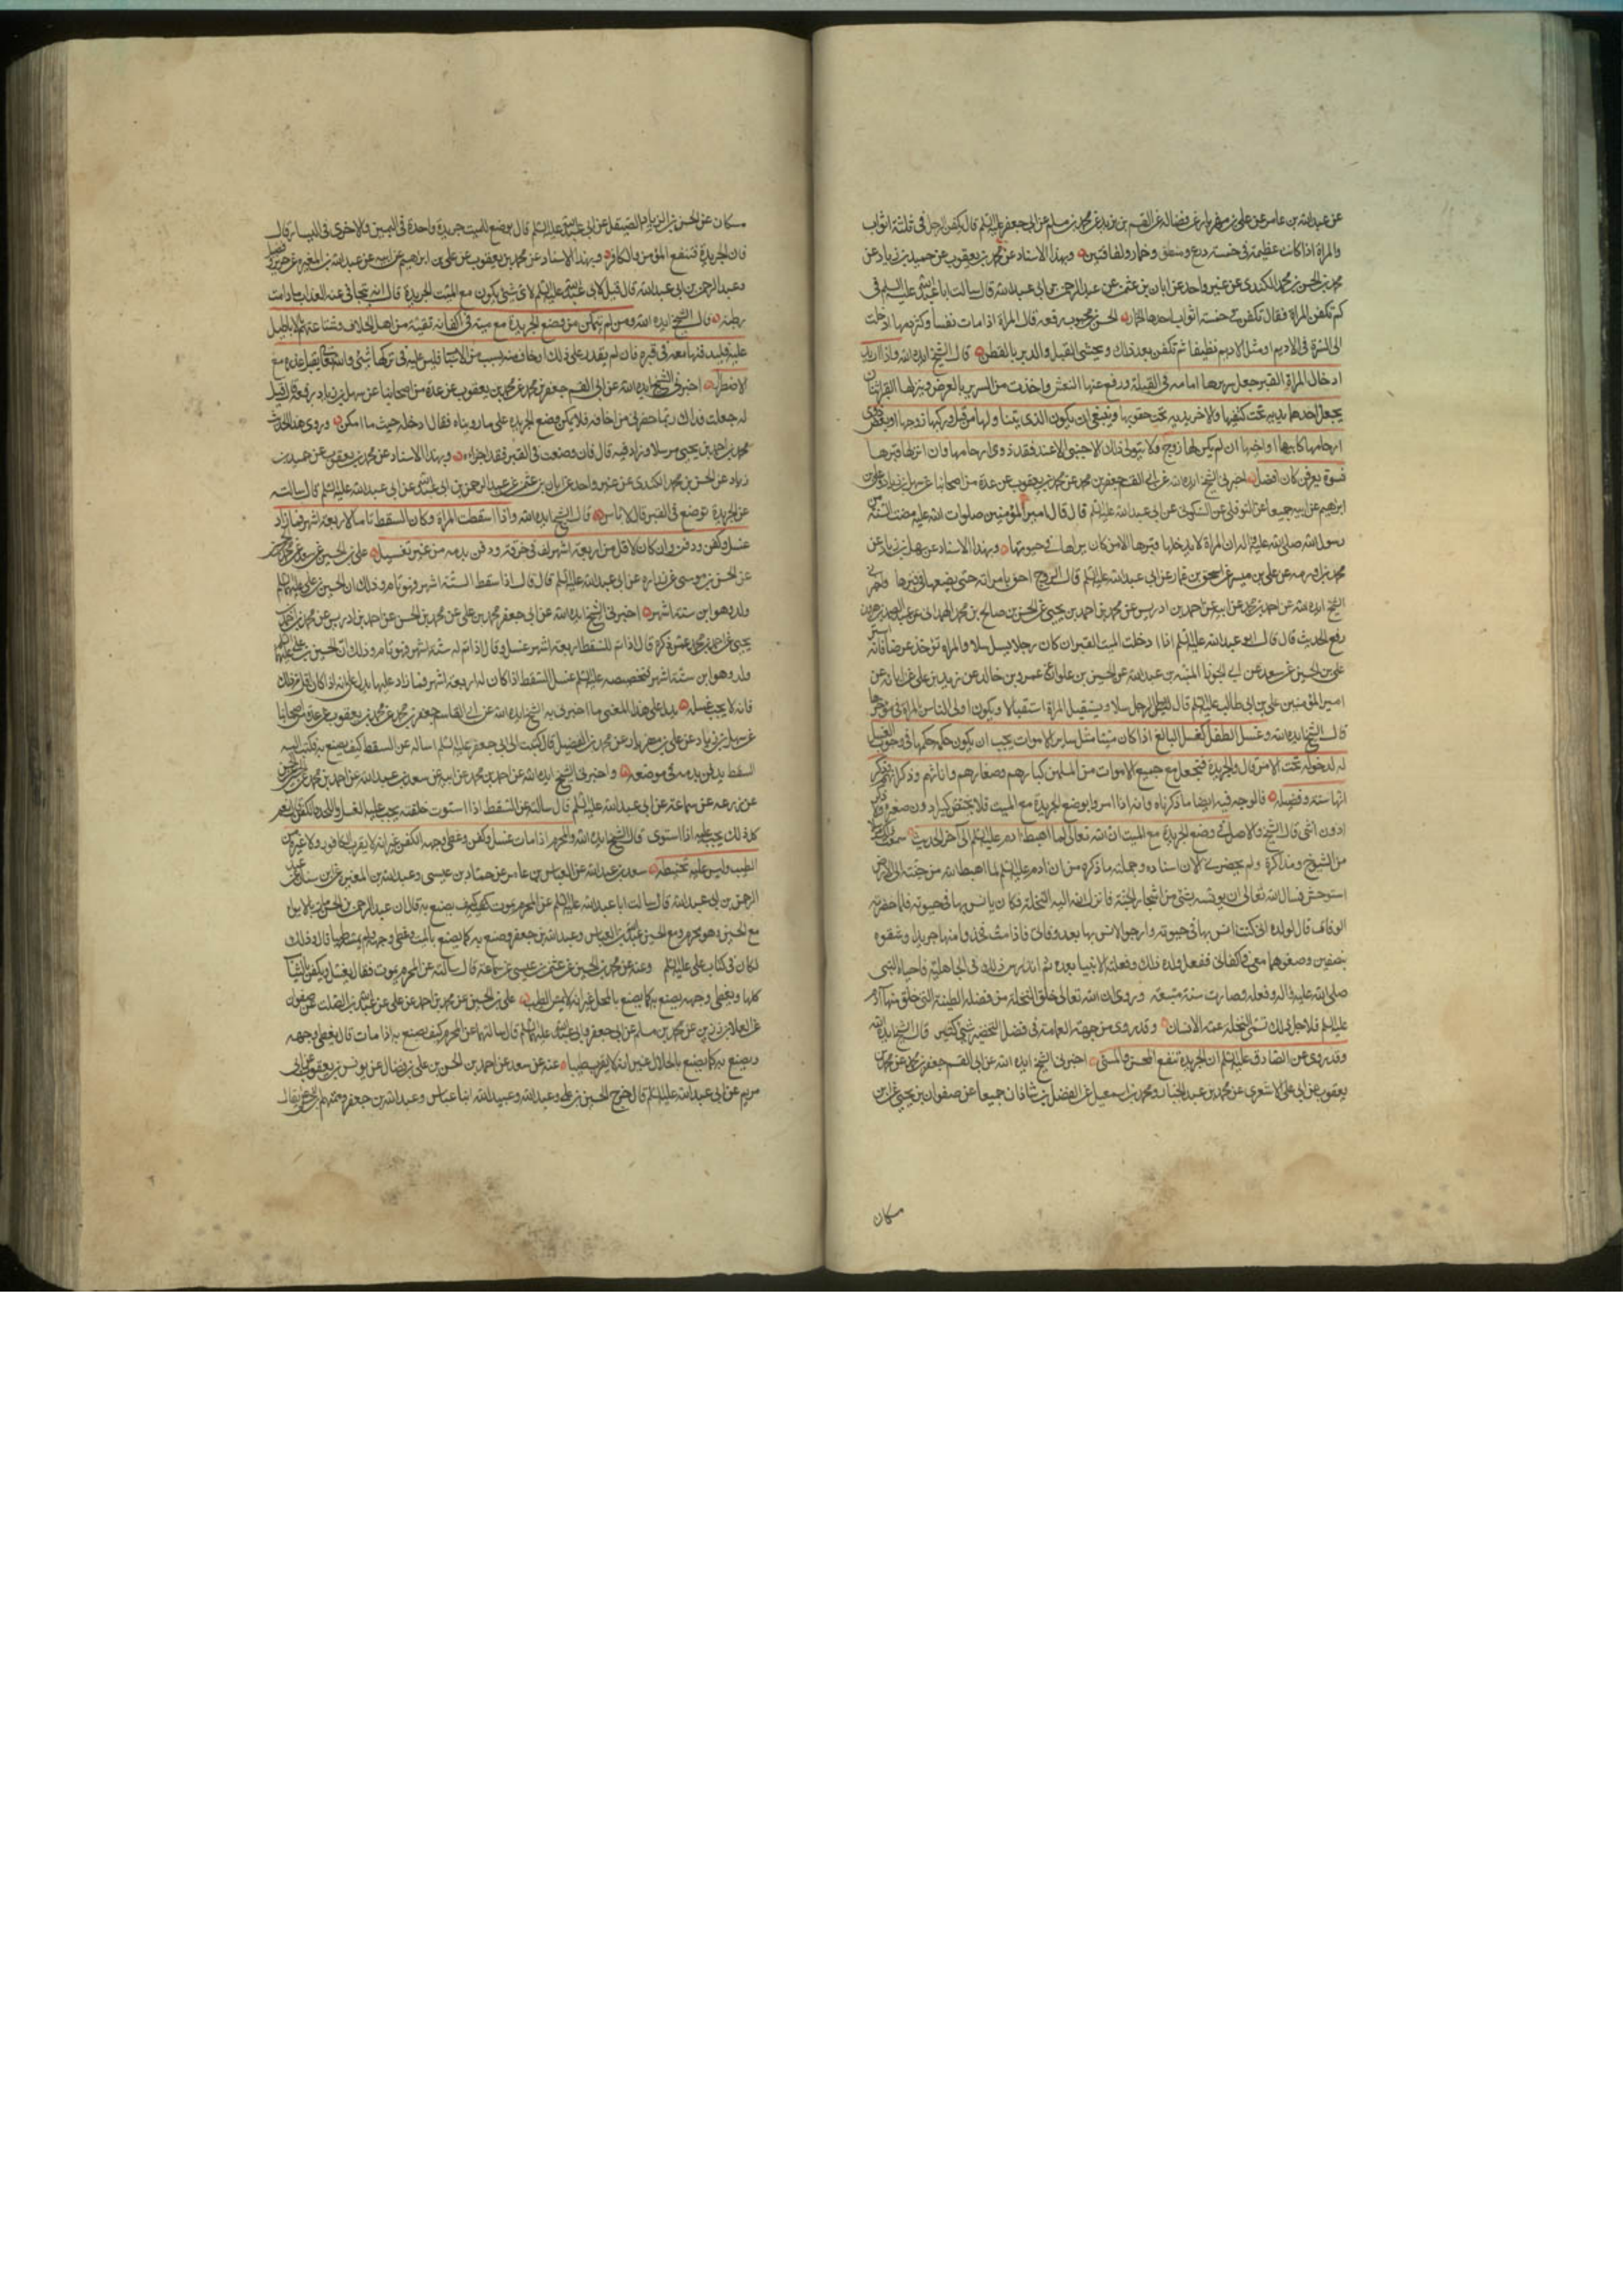 عن عبد الله بن عامر عن علي بن مهزيار عن فضالة عن القسم بن بريد عن محمد بن مسلم عن ابي جعفر عليه السلم قال يكفن الرجل في ثلثة اثواب
والمراة اذا كانت عظيمة في خمسة درع ومنطق وخمار ولفافتين وبهذا الاسناد عن محمد بن يعقوب عن حميد بن زياد عن
محمد بن الحسن بن محمد الكندي عن غير واحد عن ابان بن عثمن عن عبد الرحمن بن ابي عبد الله قال سالت ابا عبد الله عليه السلم في
كم تكفن المراة فقال تكفن في خمسة اثواب احدها الخمار الحسن بن محبوب رفعه قال المراة اذا ماتت نفساء وكثر دمها ادخلت
الى السرة في الاديم او مثل الاديم نظيف ثم تكفن بعد ذلك ويحشى القبل والدبر بالقطن قال الشيخ ايده الله واذا اريد
ادخال المراة القبر جعل سريرها امامه في القبلة ورفع عنها النعش واخذت من السرير بالعرض وينزلها القبر اثنان
يجعل احدهما يديه تحت كتفيها والاخر يديه تحت حقويها وينبغي ان يكون الذي يتناولها من قبل وركيها زوجها او بعض ذوي
ارحامها كابنها او اخيها ان لم يكن لها زوج ولا يتولى ذلك الاجنبي الا عند فقد ذوي ارحامها وان انزلها قبرها
نسوة يعرفن كان افضل اخبرني الشيخ ايده الله عن ابي القسم جعفر بن محمد عن محمد بن يعقوب عن عدة من اصحابنا عن سهل بن زياد وعلي بن
ابرهيم عن ابيه جميعا عن النوفلي عن السكوني عن ابي عبد الله عليه السلم قال قال امير المؤمنين صلوات الله عليه مضت السنة من
رسول الله صلى الله عليه واله ان المراة لا يدخلها قبرها الا من كان يراها في حيوتها وبهذا الاسناد عن سهل بن زياد عن
محمد بن اورمه عن علي بن ميسر عن اسحق بن عمار عن ابي عبد الله عليه السلم قال الزوج احق بامراته حتى يضعها في قبرها واخبرني
الشيخ ايده الله عن احمد بن محمد عن ابيه عن احمد بن ادريس عن محمد بن احمد بن يحيى عن الحسن بن صالح بن محمد الهمداني عن عبد الصمد بن هرون
رفع الحديث قال قال ابو عبد الله عليه السلم اذا ادخلت الميت القبر ان كان رجلا يسل سلا والمراة تؤخذ عرضا فانه استر
علي بن الحسين عن سعد عن ابي الجوزا المنبه بن عبد الله عن الحسين بن علوان عن عمرو بن خالد عن زيد بن علي عن ابائه عن
امير المؤمنين علي بن ابي طالب عليه السلم قال يسل الرجل سلا ويستقبل المراة استقبالا ويكون اولى الناس بالمراة في مؤخرها
قال الشيخ ايده الله وغسل الطفل كغسل البالغ اذا كان ميتا مثل سائر الاموات يجب ان يكون حكمه حكمها في وجوب الغسل
له لدخوله تحت الامر قال والجريدة تجعل مع جميع الاموات من المسلمين كبارهم وصغارهم واناثهم وذكرانهم
انها سنة وفضيلة فالوجه فيه ايضا ما ذكرناه وانه اذا امروا بوضع الجريدة مع الميت فلا يختص كبيرا دون صغير ولا ذكرا
دون انثى قال الشيخ والاصل في وضع الجريدة مع الميت ان الله تعالى لما اهبط ادم عليه السلم الى اخر الحديث سمعت ذلك مرسلا
من الشيوخ ومذاكرة ولم يحضرني الان اسناده وجملته ما ذكره من ان ادم عليه السلم لما اهبطه الله من جنته الى الارض
استوحش فسال الله تعالى ان يونسه بشئ من اشجار الجنة فانزل الله اليه النخلة فكان يانس بها في حيوته فلما حضرته
الوفاة قال لولده اني كنت انس بها في حيوتي وارجوا الانس بها بعد وفاتي فاذا مت فخذوا منها جريدا وشقوه
بنصفين وضعوهما معي في اكفاني ففعل ولده ذلك وفعلته الانبيا بعده ثم اندرس ذلك في الجاهلية فاحياه النبي
صلى الله عليه واله وفعله وصارت سنة متبعة وروي ان الله تعالى خلق النخلة من فضلة الطينة التي خلق منها آدم
عليه السلم فلاجل ذلك تسمى النخلة عمة الانسان وقد روي من جهة العامة في فضل التخضير شئ كثير قال الشيخ ايده الله
وقد روي عن الصادق عليه السلم ان الجريدة تنفع المحسن والمسئ اخبرني الشيخ ايده الله عن ابي القسم جعفر بن محمد عن محمد بن
يعقوب عن ابي علي الاشعري عن محمد بن عبد الجبار ومحمد بن اسمعيل عن الفضل بن شاذان جميعا عن صفوان بن يحيى عن ابن
مسكان
مسكان عن الحسن بن زياد الصيقل عن ابي عبد الله عليه السلم قال يوضع للميت جريدة واحدة في اليمين والاخرى في اليسار قال
فان الجريدة تنفع المؤمن والكافر وبهذا الاسناد عن محمد بن يعقوب عن علي بن ابراهيم عن ابيه عن عبد الله بن المغيرة عن حريز وفضيل
وعبد الرحمن بن ابي عبد الله قال قيل لابي عبد الله عليه السلم لاي شئ يكون مع الميت الجريدة قال انه يتجافى عنه العذاب ما دامت
رطبة قال الشيخ ايده الله ومن لم يتمكن من وضع الجريدة مع ميته في اكفانه تقية من اهل الخلاف وشناعتهم بالاباطيل
عليه فليدفنها معه في قبره فان لم يقدر على ذلك او خاف منه بسبب من الاسباب فليس عليه في تركها شئ والله تعالى يقبل عذره مع
الاضطرار اخبرني الشيخ ايده الله عن ابي القسم جعفر بن محمد عن محمد بن يعقوب عن عدة من اصحابنا عن سهل بن زياد رفعه قال قيل
له جعلت فداك ربما حضرني من اخافه فلا يمكن وضع الجريدة على ما رويناه فقال ادخله حيث ما امكن وروى هذا الحديث
محمد بن احمد بن يحيى مرسلا وزاد فيه قال فان وضعت في القبر فقد اجزاه وبهذا الاسناد عن محمد بن يعقوب عن حميد بن
زياد عن الحسن بن محمد الكندي عن غير واحد عن ابان بن عثمن عن عبد الرحمن بن ابي عبد الله عن ابي عبد الله عليه السلم قال سالته
عن الجريدة توضع في القبر قال لا باس قال الشيخ ايده الله واذا اسقطت المراة وكان السقط تاما لاربعة اشهر فما زاد
غسل وكفن ودفن وان كان لاقل من اربعة اشهر لف في خرقة ودفن بدمه من غير تغسيل علي بن الحسين عن سعد عن محمد بن الحسين
عن الحسن بن موسى عن زرارة عن ابي عبد الله عليه السلم قال قال اذا سقط لستة اشهر فهو تام وذلك ان الحسين بن علي عليهما السلم
ولد وهو ابن ستة اشهر اخبرني الشيخ ايده الله عن ابي جعفر محمد بن علي عن محمد بن الحسن عن احمد بن ادريس عن محمد بن احمد بن
يحيى عن احمد بن محمد عمن ذكره قال اذا تم للسقط اربعة اشهر غسل وقال اذا تم له ستة اشهر فهو تام وذلك ان الحسين بن علي عليهما السلم
ولد وهو ابن ستة اشهر فتخصيصه عليه السلم غسل السقط اذا كان له اربعة اشهر فما زاد عليها يدل على انه اذا كان اقل من ذلك
فانه لا يجب غسله يدل على هذا المعنى ما اخبرني به الشيخ ايده الله عن ابي القاسم جعفر بن محمد عن محمد بن يعقوب عن عدة من اصحابنا
عن سهل بن زياد عن علي بن مهزيار عن محمد بن الفضيل قال كتبت الى ابي جعفر عليه السلم اساله عن السقط كيف يصنع به فكتب اليه
السقط يدفن بدمه في موضعه واخبرني الشيخ ايده الله عن احمد بن محمد عن ابيه عن سعد بن عبد الله عن احمد بن محمد
عن زرعة عن سماعة عن ابي عبد الله عليه السلم قال سالته عن السقط اذا استوت خلقته يجب عليه الغسل واللحد والكفن قال نعم
كل ذلك يجب عليه اذا استوى قال الشيخ ايده الله والمحرم اذا مات غسل وكفن وغطي وجهه بالكفن غير انه لا يقرب الكافور ولا غيره من
الطيب وليس عليه تحنيط سعد بن عبد الله عن العباس عن حماد بن عيسى وعبد الله بن المغيرة عن ابن سنان عن عبد
الرحمن بن ابي عبد الله قال سالت ابا عبد الله عليه السلم عن المحرم يموت كيف يصنع به قال ان عبد الرحمن بن الحسن مات بالابواء
مع الحسين وهو محرم ومع الحسين عبد الله بن العباس وعبد الله بن جعفر وصنع به كما يصنع بالميت وغطى وجهه ولم يمسه طيبا قال وذلك
كان في كتاب علي عليه السلم وعنه عن محمد بن الحسين عن عثمن بن عيسى عن سماعة قال سالته عن المحرم يموت فقال يغسل ويكفن بالثياب
كلها ويغطى وجهه يصنع به كما يصنع بالمحل غير انه لا يمس الطيب علي بن الحسين عن محمد بن احمد بن علي عن عبد الله بن الصلت عن صفوان
عن العلاء بن رزين عن محمد بن مسلم عن ابي جعفر وابي عبد الله عليهما السلم قال سالتهما عن المحرم كيف يصنع به اذا مات قال يغطى وجهه
ويصنع به كما يصنع بالحلال غير انه لا يقربه طيبا عنه عن سعد عن احمد بن الحسن بن علي بن فضال عن يونس بن يعقوب عن ابي
مريم عن ابي عبد الله عليه السلم قال خرج الحسين بن علي وعبد الله وعبيد الله ابنا عباس وعبد الله بن جعفر ومعهم